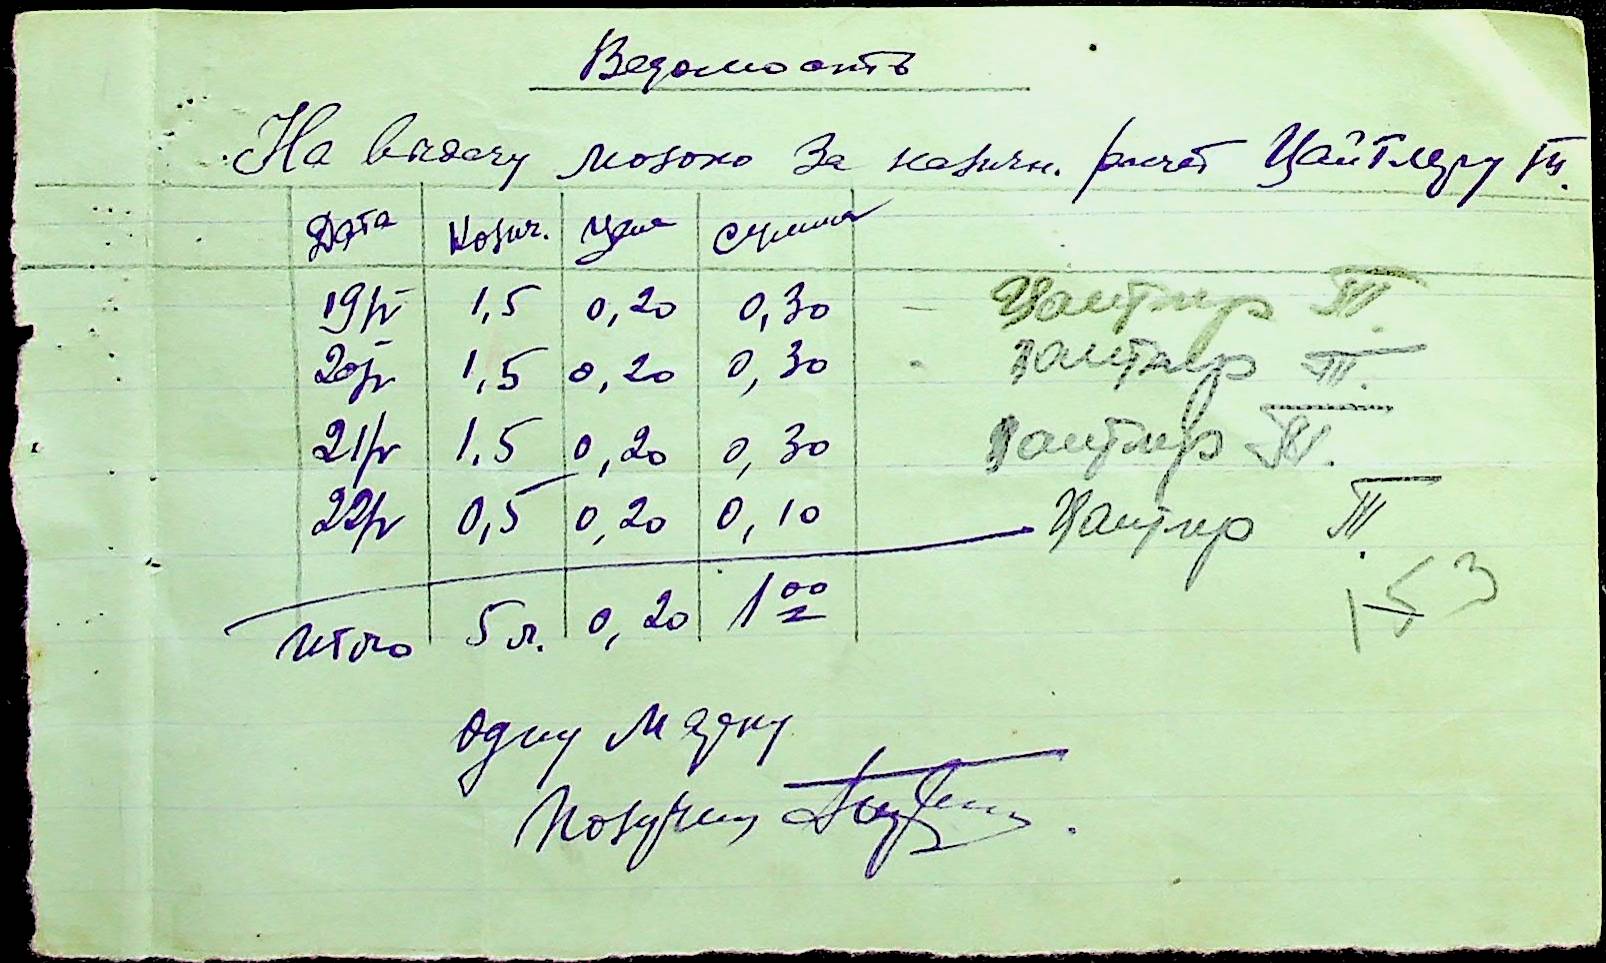 Ведомость
На выдачу молоко за наличн. расчёт Цайтлеру Т.
Дата Колич. Цена Сумма
19/V 1,5 0,20 0,30 – Цайтлер Т.
20/V 1,5 0,20 0,30 - Цайтлер Т.
21/V 1,5 0,20 0,30 Цайтлер Т.
22/V 0,5 0,20 0,10 Цайтлер Т.
Итого 5 л. 0,20 1 00
153
одну марку
Получил